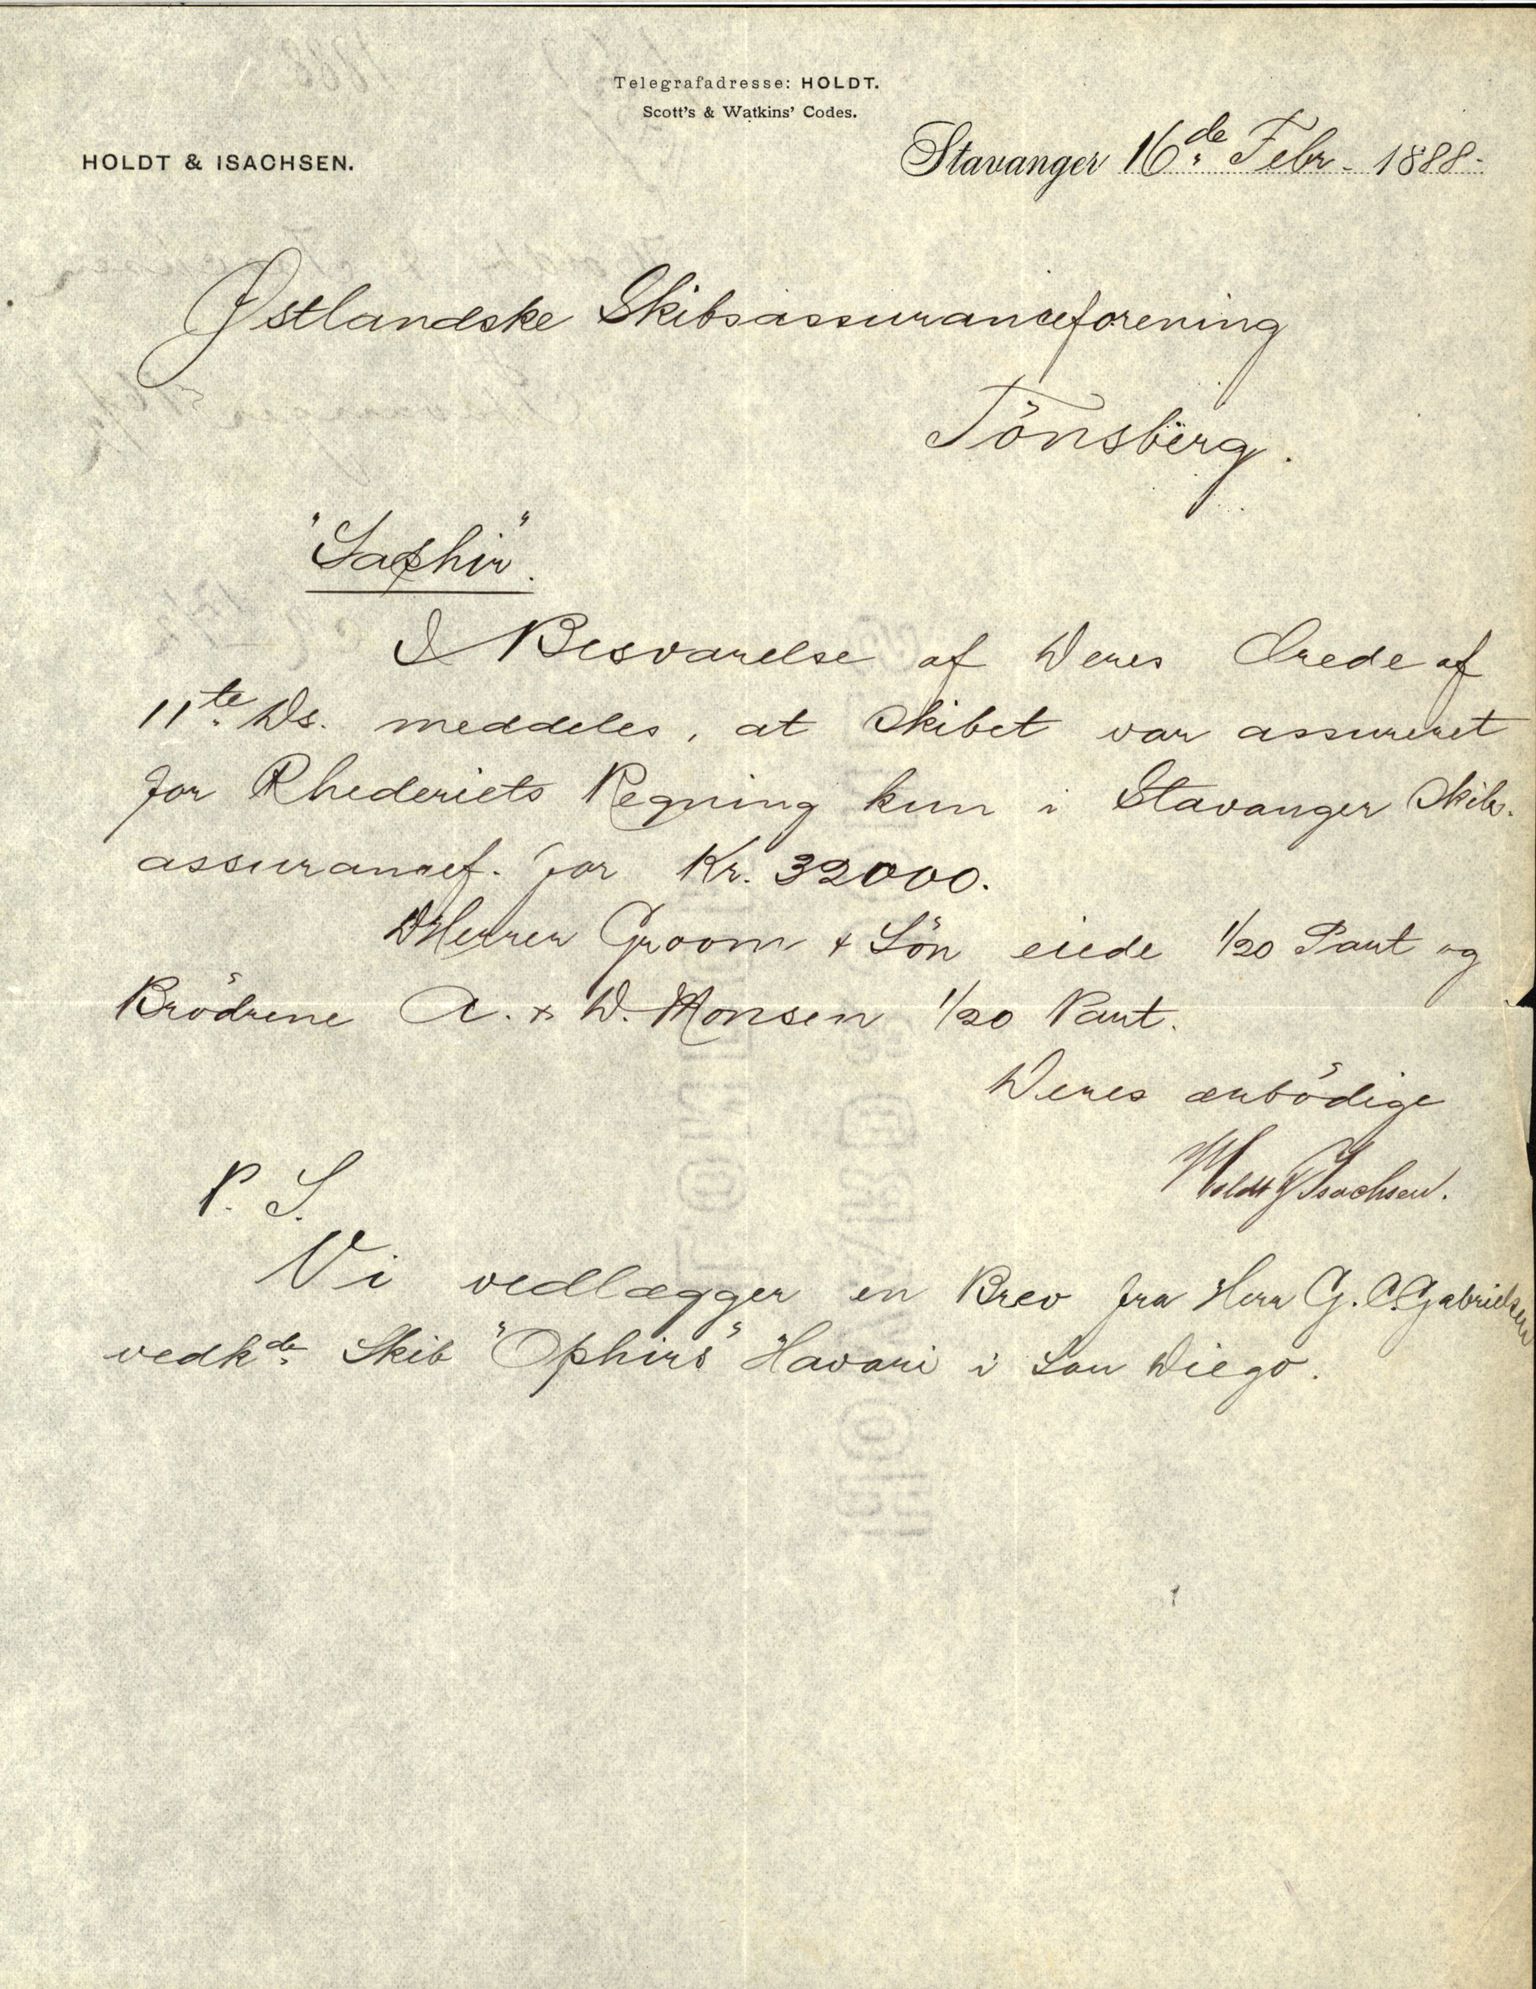 Telegrafadresse: HOLDT.
Scott's & Watkins' Codes.
HOLDT & ISACHSEN.
Stavanger 16de Febr. 1888.
Østlandske Skibsassuranceforening
Tönsberg.
"Saphir".
I Besvarelse af Deres Ærede af
11te Ds. meddeles, at Skibet var assureret
for Rhederiets Regning kun i Stavanger Skibs-
assurancef. for Kr. 32000.
DHerrer Groom & Sön eiede 1/20 Part og
Brödrene A. & D. Monsen 1/20 Part.
Deres ærbödige
Holdt & Isachsen.
P. S.
Vi vedlægger en Brev fra Herr G. C. Gabrielsen
vedkde Skib "Ophirs" Havari i San Diego.